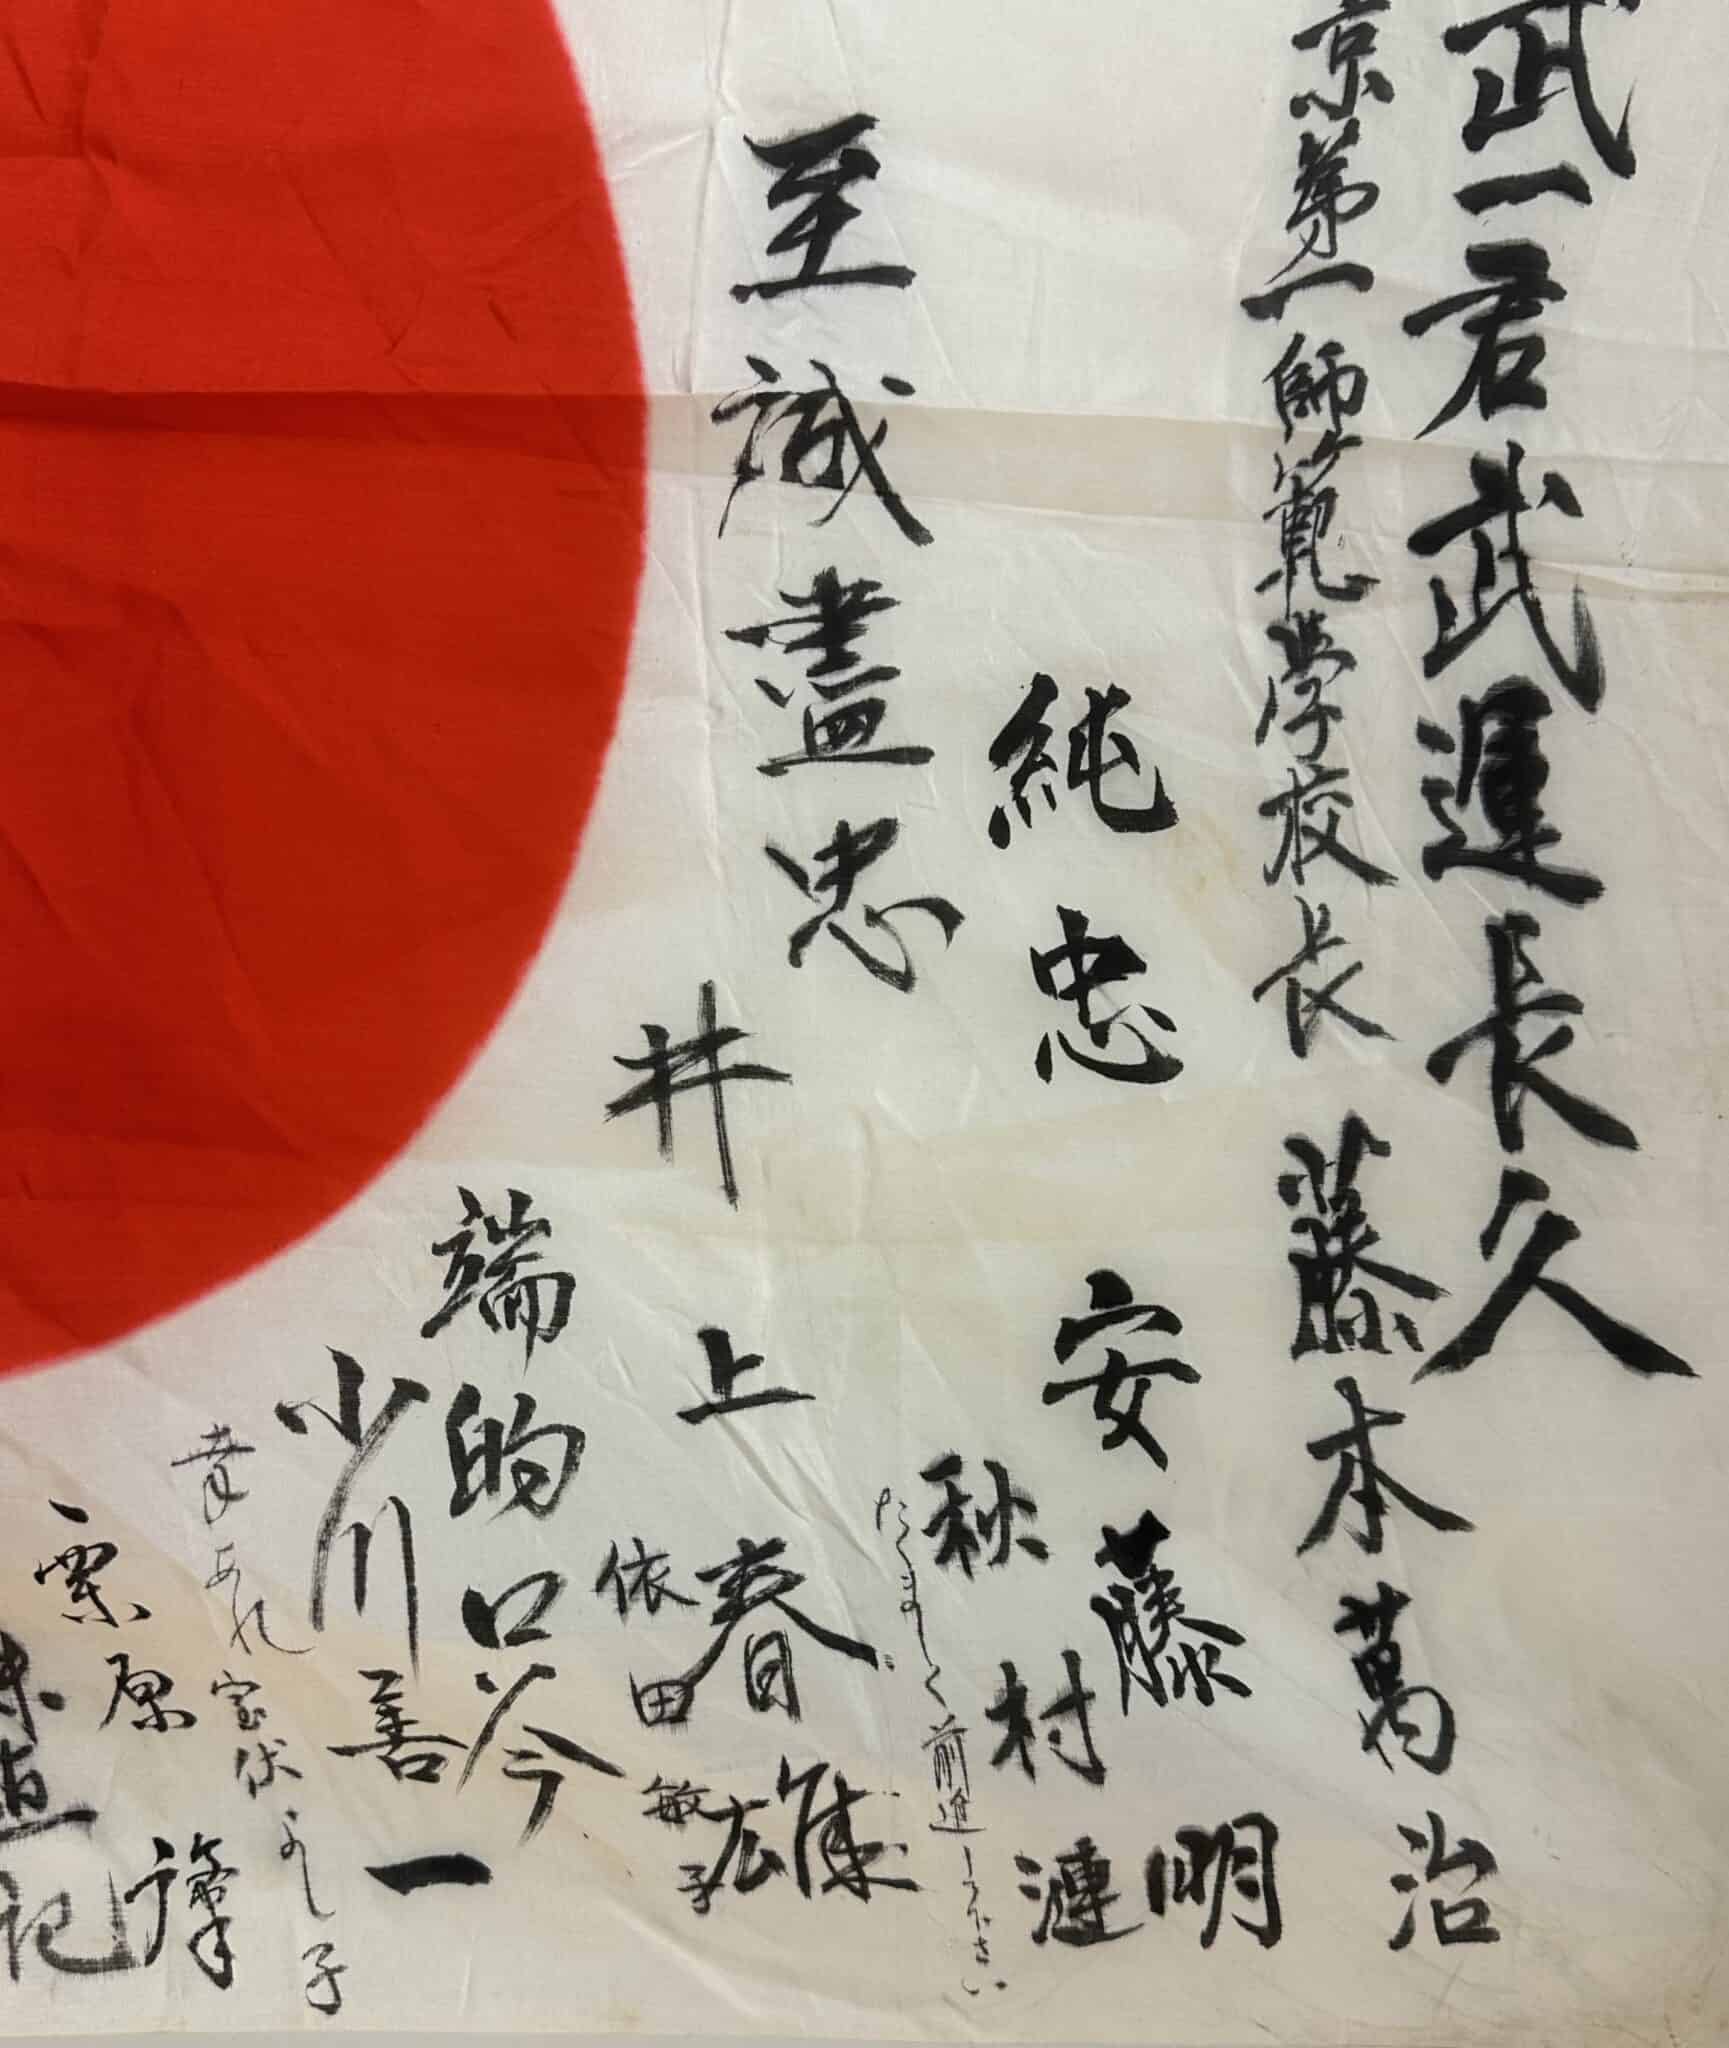 武一君武運長久
京第一師範学校長 藤本萬治
純忠 安藤明
秋村
たくましく前進して下さい
至誠盡忠 井上春雄
依田敏子
端的只今
小川善一
幸あれ 宝伏よし子
栗原